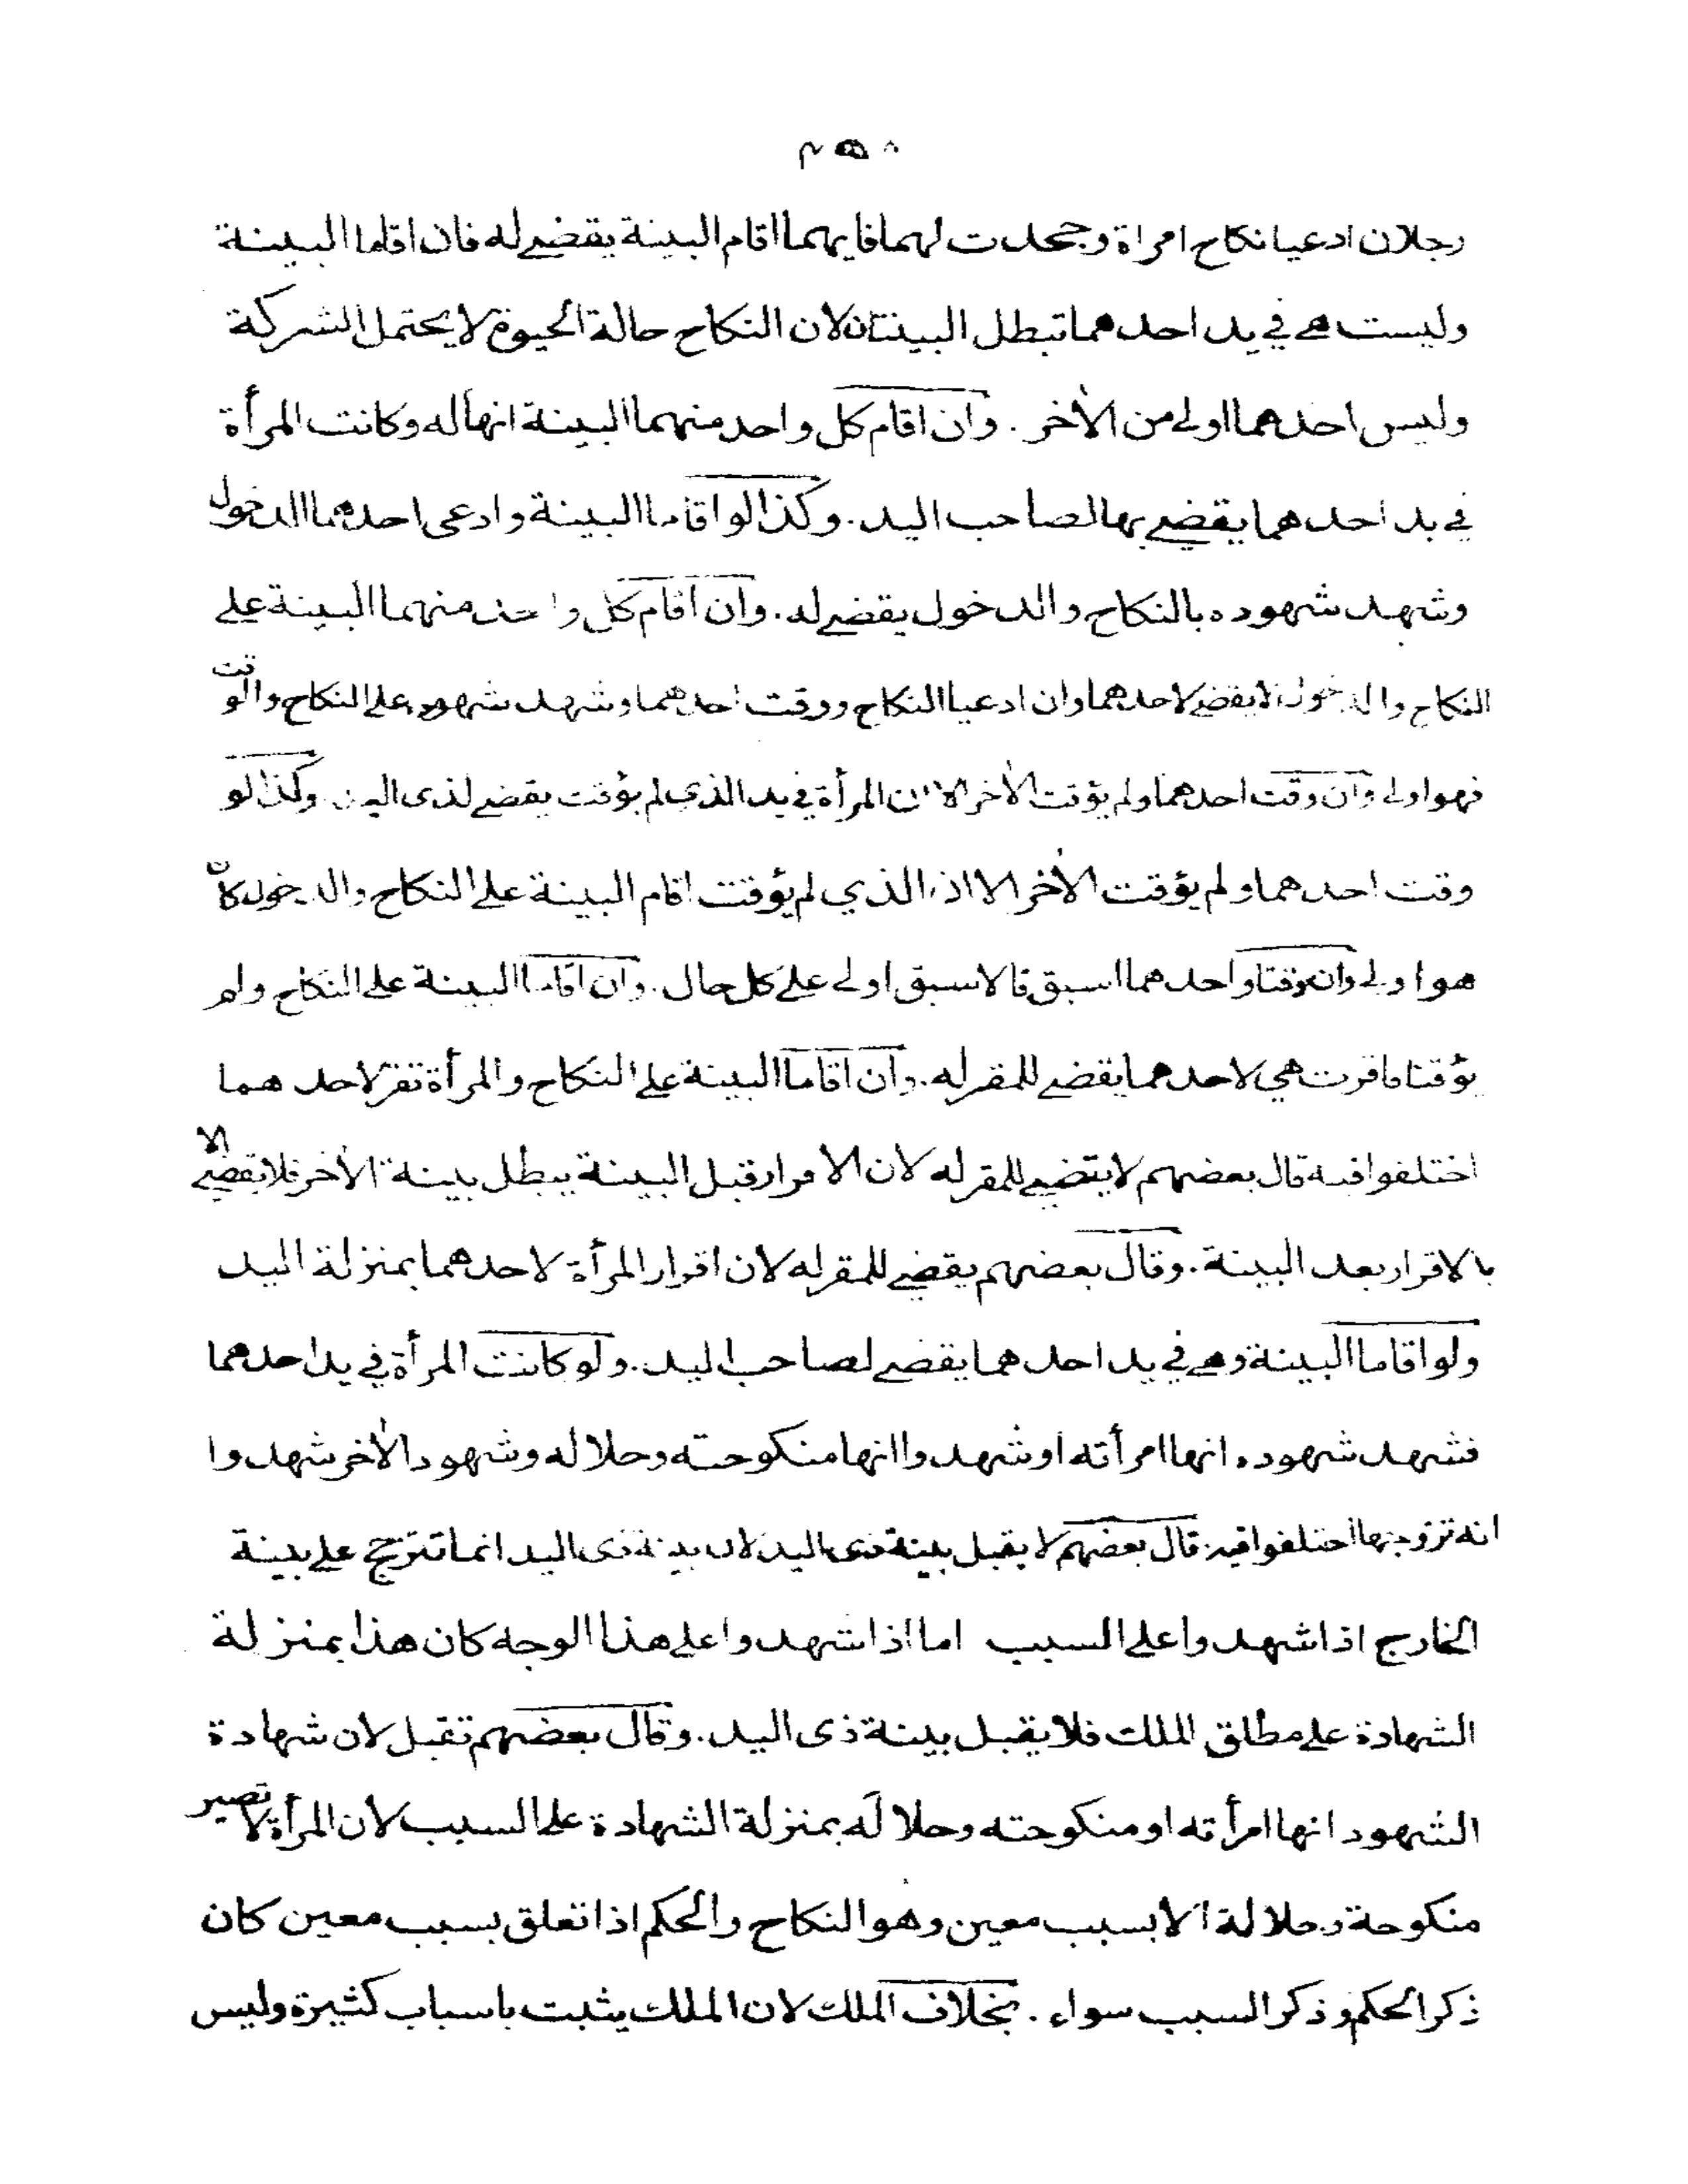 رجلان ادعيا نكاح امراة وجحدت لهما فايهما اقام البينة يقضے له فان اقاما البينة
وليست هے في يد احدهما تبطل البينتان لان النكاح حالة الحيوة لا يحتمل الشركة
وليس احدهما اولے من الأخر . وان اقام كل واحد منهما البينة انها له وكانت المرأة
في يد احدهما يقضے بها لصاحب اليد . وكذا لو اقاما البينة وادعى احدهما الدخول
وشهد شهوده بالنكاح والدخول يقضے له . وان اقام كل واحد منهما البينة علے
النكاح والدخول لا يقضے لاحدهما وان ادعيا النكاح ووقت احدهما وشهد شهوده علے النكاح والوقت
فهو اولے وان وقت احدهما ولم يؤقت الأخر الا ان المرأة في يد الذي لم يؤقت يقضے لذى اليد . وكذا لو
وقت احدهما ولم يؤقت الأخر الا ان الذي لم يؤقت اقام البينة علے النكاح والدخول كان
هو اولے وان وقتا واحدهما اسبق فالاسبق اولے علے كل حال . وان اقاما البينة علے النكاح ولم
يؤقتا فاقرت هي لاحدهما يقضے للمقر له . وان اقاما البينة علے النكاح والمرأة تقر لاحدهما
اختلفوا فيه قال بعضهم لا يقضے للمقر له لان الاقرار قبل البينة يبطل بينة الأخر فلا يقضے الا
بالاقرار بعد البينة . وقال بعضهم يقضے للمقر له لان اقرار المرأة لاحدهما بمنزلة اليد
ولو اقاما البينة وهے في يد احدهما يقضے لصاحب اليد . ولو كانت المرأة في يد احدهما
فشهد شهوده انها امرأته او شهدوا انها منكوحته وحلاله وشهود الأخر شهدوا
انه تزوجها اختلفوا فيه قال بعضهم لا يقبل بينة ذى اليد لان بينة ذى اليد انما تترجح علے بينة
الخارج اذا شهدوا علے السبب اما اذا شهدوا علے هذا الوجه كان هذا بمنزلة
الشهادة علے مطلق الملك فلا يقبل بينة ذى اليد . وقال بعضهم تقبل لان شهادة
الشهود انها امرأته او منكوحته وحلا له بمنزلة الشهادة علے السبب لان المرأة لا تصير
منكوحة وحلا لة الا بسبب معين وهو النكاح والحكم اذا تعلق بسبب معين كان
ذكر الحكم وذكر السبب سواء . بخلاف الملك لان الملك يثبت باسباب كثيرة وليس